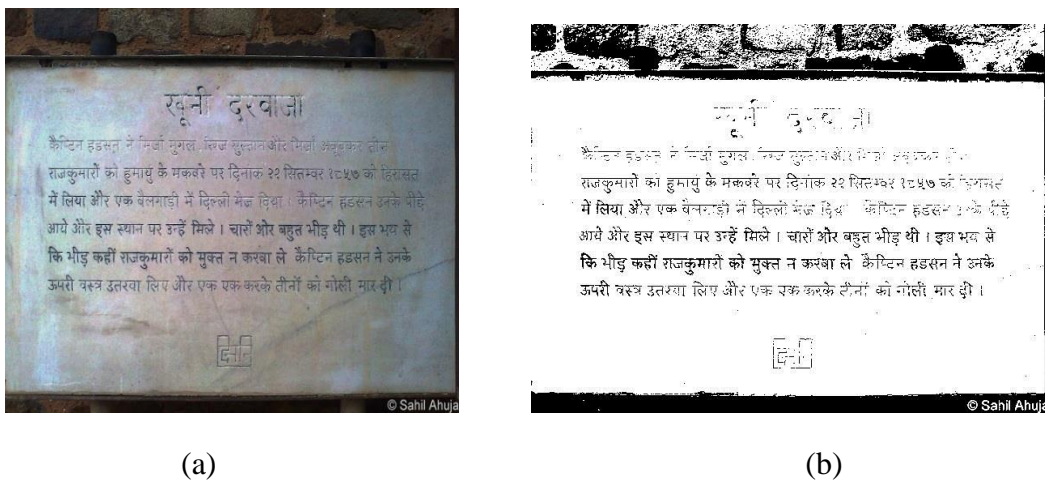 खूनी दरवाजा
कैप्टिन हडसन ने मिर्जा मुगल, सुल्तान और मिर्जा अबूबकर तीन
राजकुमारों को हुमायुं के मकबरे पर दिनांक २२ सितम्बर १८५७ को हिरासत
में लिया और एक बैलगाड़ी में दिल्ली भेज दिया । कैप्टिन हडसन उनके पीछे
आये और इस स्थान पर उन्हें मिले । चारों ओर बहुत भीड़ थी । इस भय से
कि भीड़ कहीं राजकुमारों को मुक्त न करवा ले कैप्टिन हडसन ने उनके
ऊपरी वस्त्र उतरवा लिए और एक एक करके तीनों को गोली मार दी ।
© Sahil Ahuja
(a)
राजकुमारों को हुमायुं के मकबरे पर दिनांक २२ सितम्बर १८५७ को
में लिया और एक बैलगाड़ी में दिल्ली भेज दिया कैप्टिन हडसन उनके पीछे
आये और इस स्थान पर उन्हें मिले । चारों ओर बहुत भीड़ थी । इस भय से
कि भीड़ कहीं राजकुमारों को मुक्त न करवा ले कैप्टिन हडसन ने उनके
ऊपरी वस्त्र उतरवा लिए और एक एक करके तीनों को गोली मार दी ।
© Sahil Ahuja
(b)